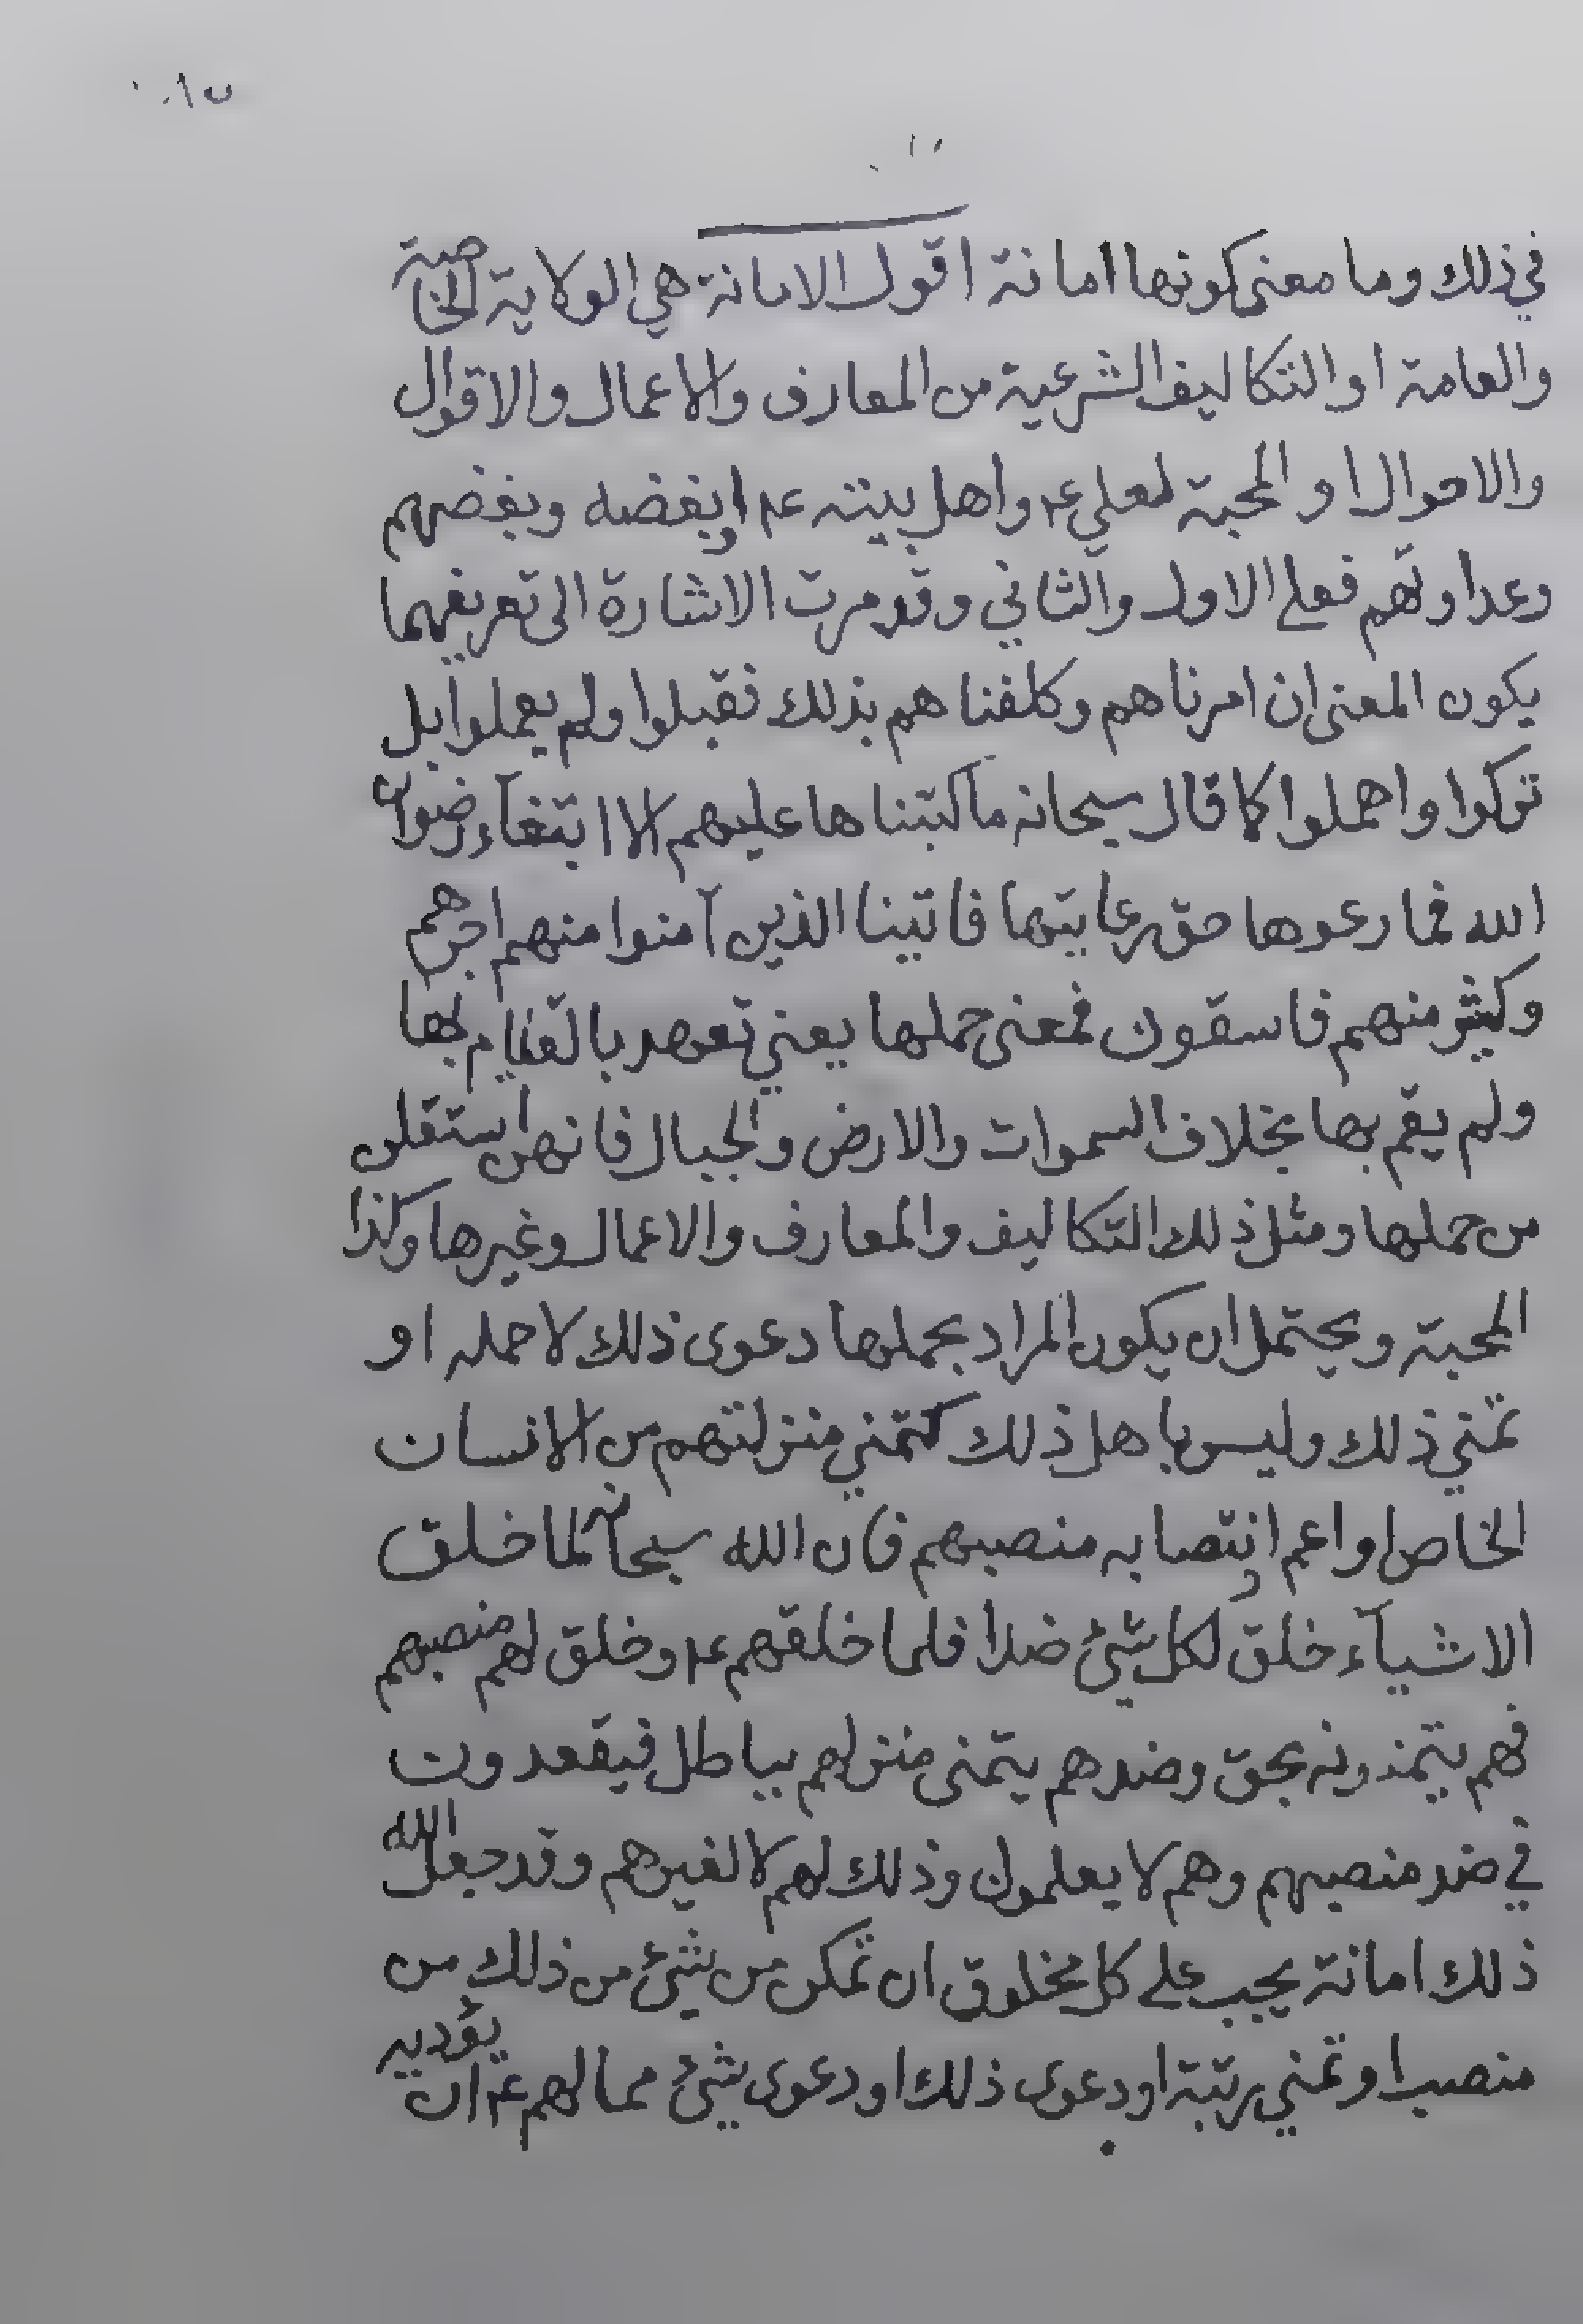 في ذلك وما معنى كونها امانة اقول الامانة هي الولاية الخاصة
والعامة او التكاليف الشرعية من المعارف والاعمال والاقوال
والاحوال او المحبة لعلي عم واهل بيته عم او بغضه وبغضهم
وعداوتهم فعلى الاول والثاني وقد مرت الاشارة الى تعريفهما
يكون المعنى ان امرناهم وكلفناهم بذلك فقبلوا ولم يعملوا بل
تركوا واهملوا كما قال سبحانه ما كتبناها عليهم الا ابتغآء رضوان
الله فما رعوها حق رعايتها فاتينا الذين آمنوا منهم اجرهم
وكثير منهم فاسقون فمعنى حملها يعني تعهد بالقيام بها
ولم يقم بها بخلاف السموات والارض والجبال فانهن استقلن
من حملها ومثل ذلك التكاليف والمعارف والاعمال وغيرها وكذا
المحبة ويحتمل ان يكون المراد بحملها دعوى ذلك لا حمله او
تمني ذلك وليس باهل ذلك كتمني منزلتهم من الانسان
الخاص او اعم او انتصابه منصبهم فان الله سبحانه لما خلق
الاشيآء خلق لكل شئ ضدا فلما خلقهم عم وخلق لهم منصبهم
فهم يتمنونه بحق وضدهم يتمنى منزلهم بباطل فيقعدون
في ضد منصبهم وهم لا يعلمون وذلك لهم لا لغيرهم وقد جعل الله
ذلك امانة يجب على كل مخلوق ان تمكن من شئ من ذلك من
منصب او تمني رتبة او دعوى ذلك او دعوى شئ مما لهم عم ان يؤديه